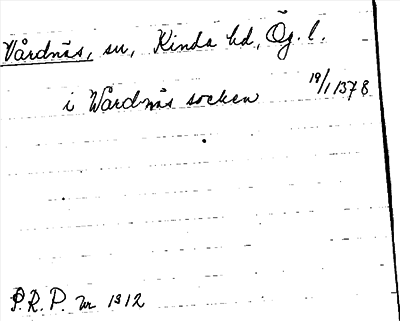 Vårdnäs, sn, Kinda hd, Ög. l.
i Wardnäs socken 19/1 1378
P.R.P. nr 1312